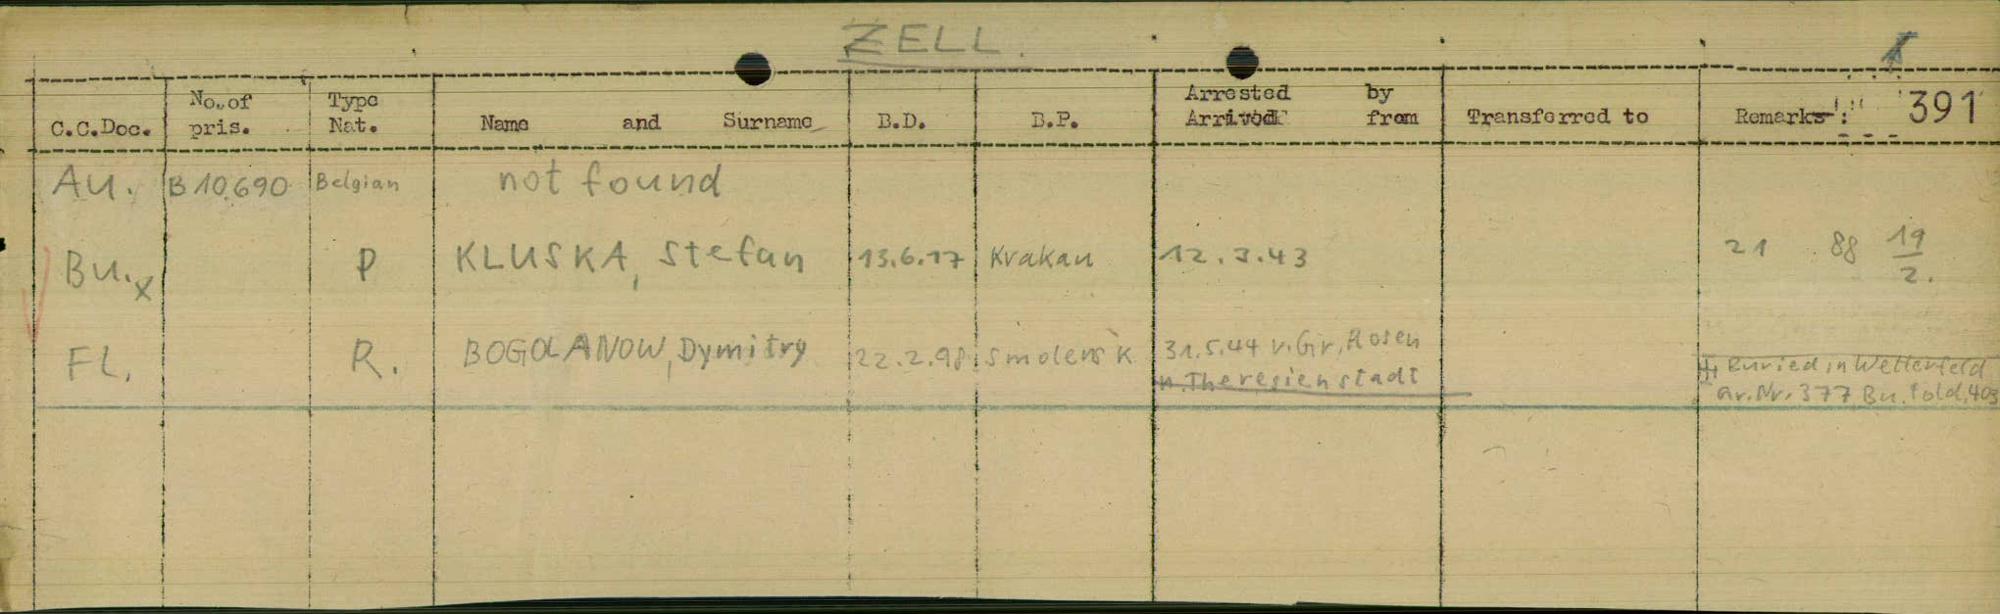 ZELL.
C.C.Doc. No. of pris. Type Nat. Name and Surname B.D. B.P. Arrested by Arrived from Transferred to Remarks: 391
Au. B 10.690 Belgian not found
Bu.x P KLUSKA, Stefan 13.6.17 Krakau 12.3.43 21 88 19/2.
FL. R. BOGDANOW, Dymitry 22.2.98 Smolensk 31.5.44 v. Gr. Rosen Buried in Wetterfeld
n. Theresienstadt Gr. Nr. 377 Bu. fold. 403